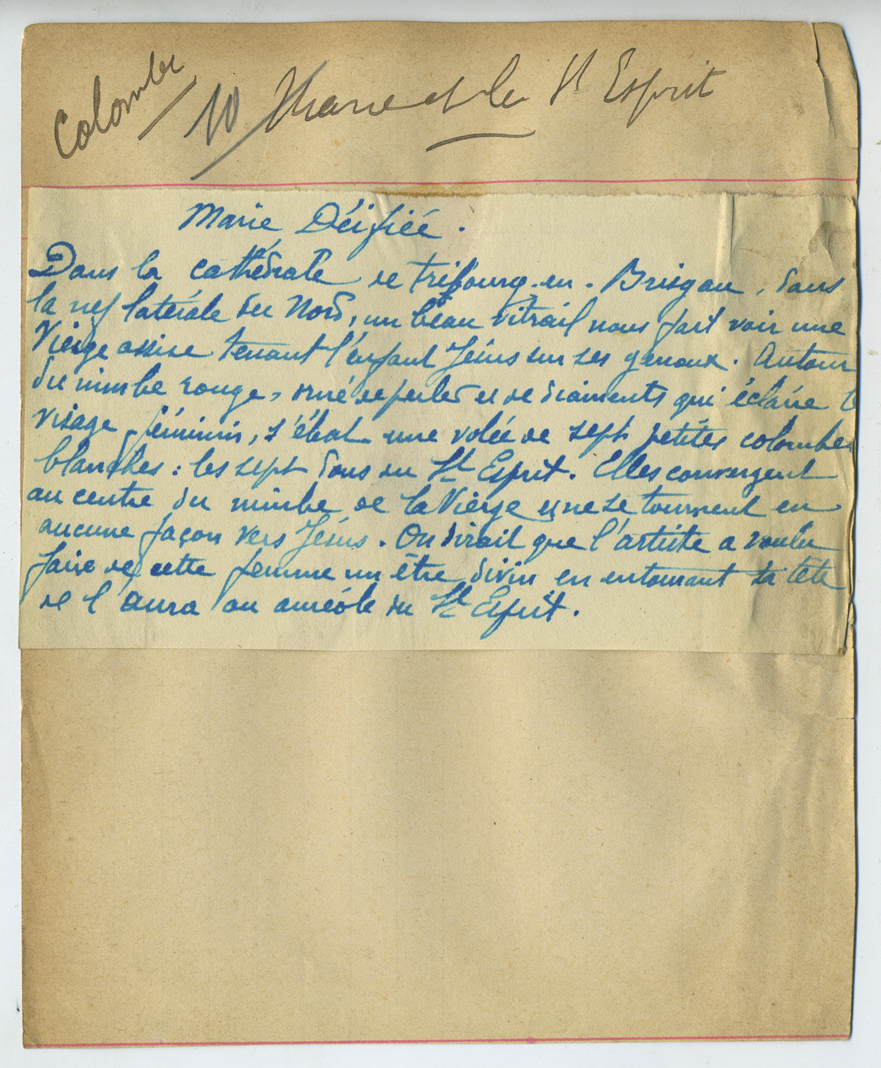 Colombe / 10 Marie et le St Esprit
Marie Déifiée.
Dans la cathédrale de Fribourg-en-Brisgau, dans
la nef latérale du Nord, un beau vitrail nous fait voir une
Vierge assise tenant l'enfant Jésus sur ses genoux. Autour
du nimbe rouge, orné de perles et de diamants qui éclaire le
visage féminin, s'ébat une volée de sept petites colombes
blanches : les sept dons du St Esprit. Elles convergent
au centre du nimbe de la Vierge et ne se tournent en
aucune façon vers Jésus. On dirait que l'artiste a voulu
faire de cette femme un être divin en entourant sa tête
de l'aura ou auréole du St Esprit.